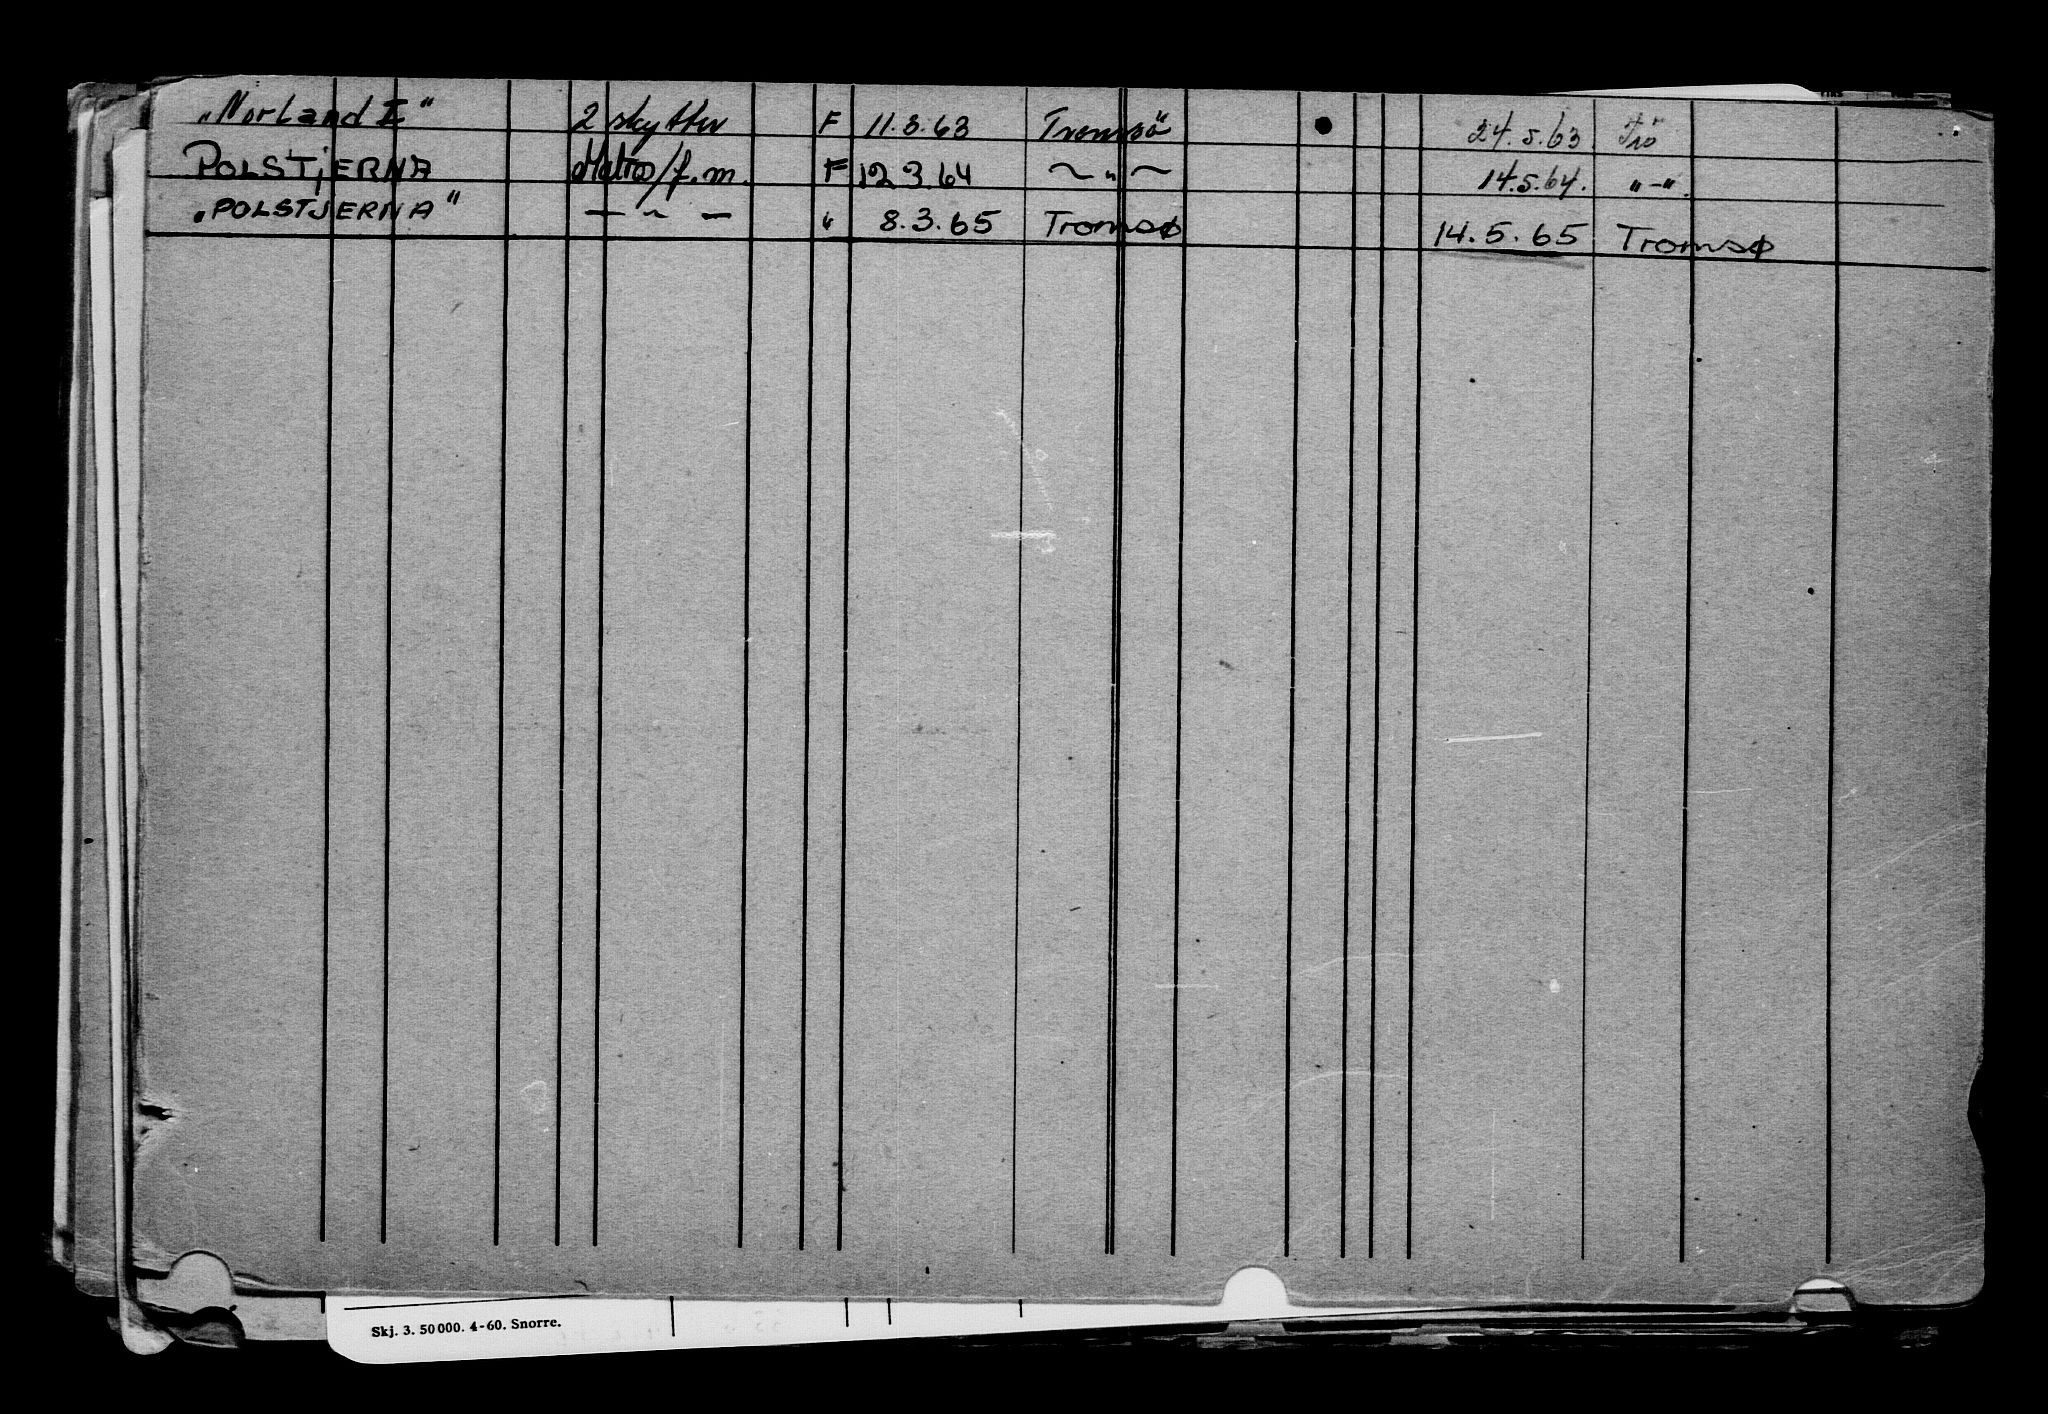 „Norland I“ 2 skytter F 11.3.63 Tromsö 24.5.63 Trö
POLSTJERNA Matros/f.m. F 12.3.64 ~ „ ~ 14.5.64. „-“.
„POLSTJERNA“ — „ — „ 8.3.65 Tromsø 14.5.65 Tromsø
Skj. 3. 50 000. 4-60. Snorre.